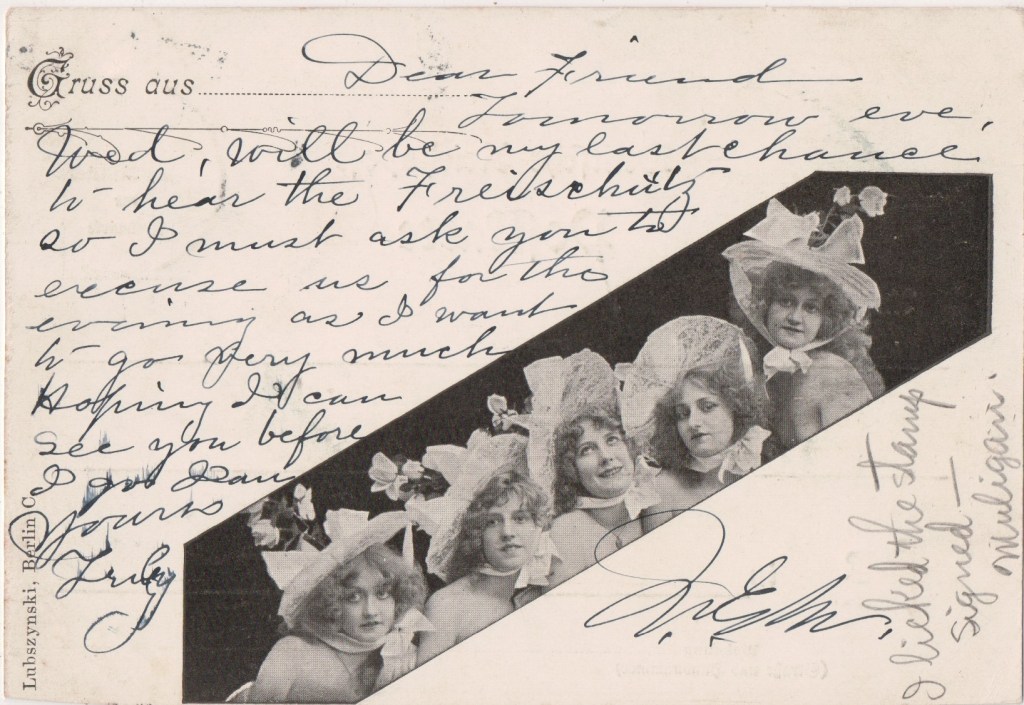 Gruss aus
Dear Friend
Tomorrow eve,
Wed, will be my last chance
to hear the Freischütz
so I must ask you to
excuse us for the
evening as I want
to go very much
Hoping I can
see you before
I go I am
Yours
Truly
I licked the stamp
signed —
Muligan.
Lubszynski, Berlin C.